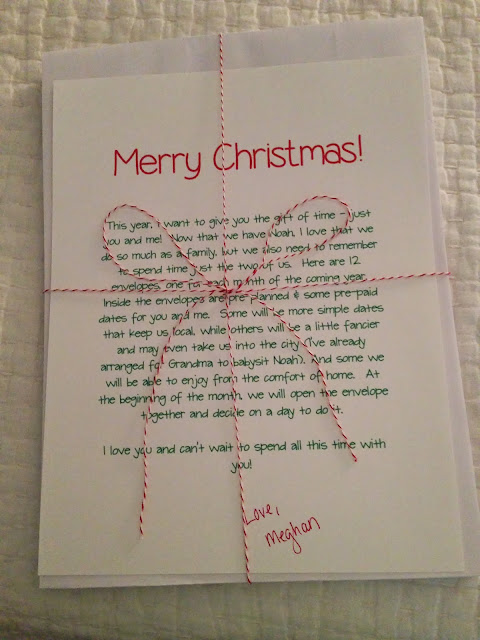 Merry Christmas!
This year, I want to give you the gift of time - just
you and me! Now that we have Noah, I love that we
do so much as a family, but we also need to remember
to spend time just the two of us. Here are 12
envelopes, one for each month of the coming year.
Inside the envelopes are pre-planned & some pre-paid
dates for you and me. Some will be more simple dates
that keep us local, while others will be a little fancier
and may even take us into the city (I've already
arranged for Grandma to babysit Noah). And some we
will be able to enjoy from the comfort of home. At
the beginning of the month, we will open the envelope
together and decide on a day to do it.
I love you and can't wait to spend all this time with
you!
Love,
Meghan